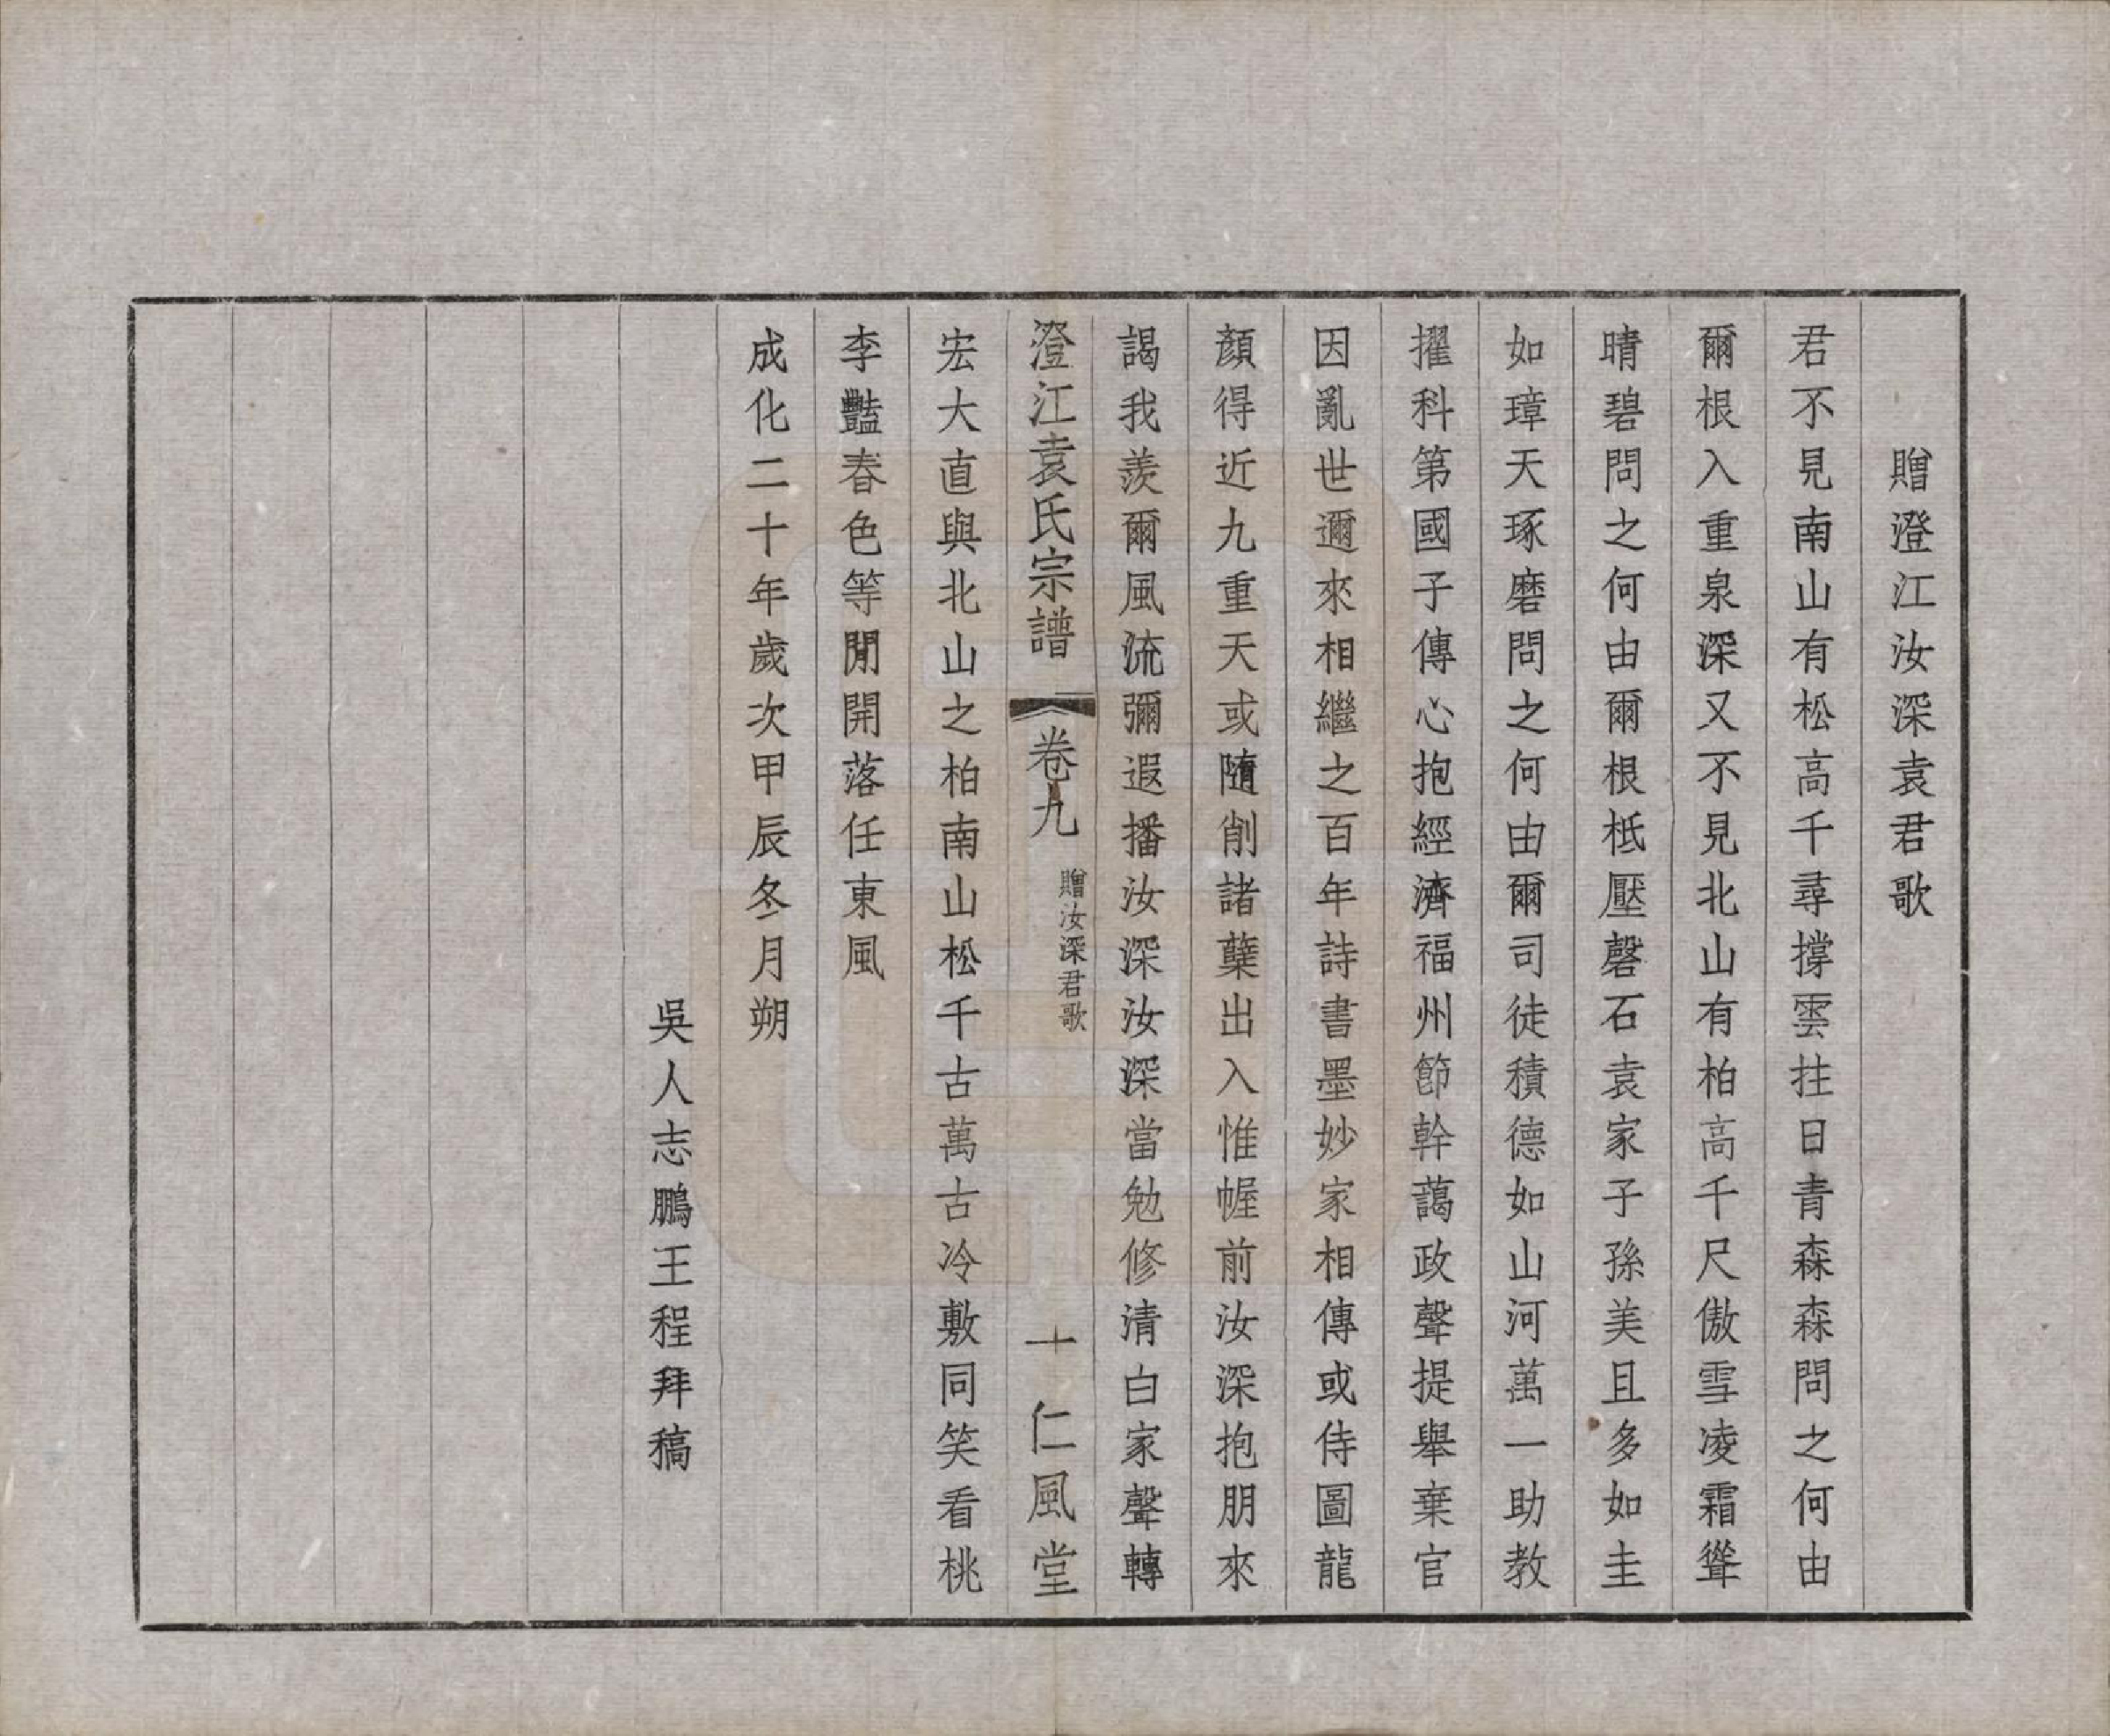 贈澄江汝深袁君歌
君不見南山有松高千尋撐雲拄日青森森問之何由
爾根入重泉深又不見北山有柏高千尺傲雪凌霜聳
晴碧問之何由爾根柢壓磬石袁家子孫美且多如圭
如璋天琢磨問之何由爾司徒積德如山河萬一助教
擢科第國子傳心抱經濟福州節幹藹政聲提舉棄官
因亂世邇來相繼之百年詩書墨妙家相傳或侍圖龍
顏得近九重天或隨削諸蘖出入惟幄前汝深抱朋來
謁我羨爾風流彌遐播汝深汝深當勉修清白家聲轉
澄江袁氏宗譜
卷九
贈汝深君歌
十
仁風堂
宏大直與北山之柏南山松千古萬古冷敷同笑看桃
李豔春色等閒開落任東風
成化二十年歲次甲辰冬月朔
吳人志鵬王程拜稿